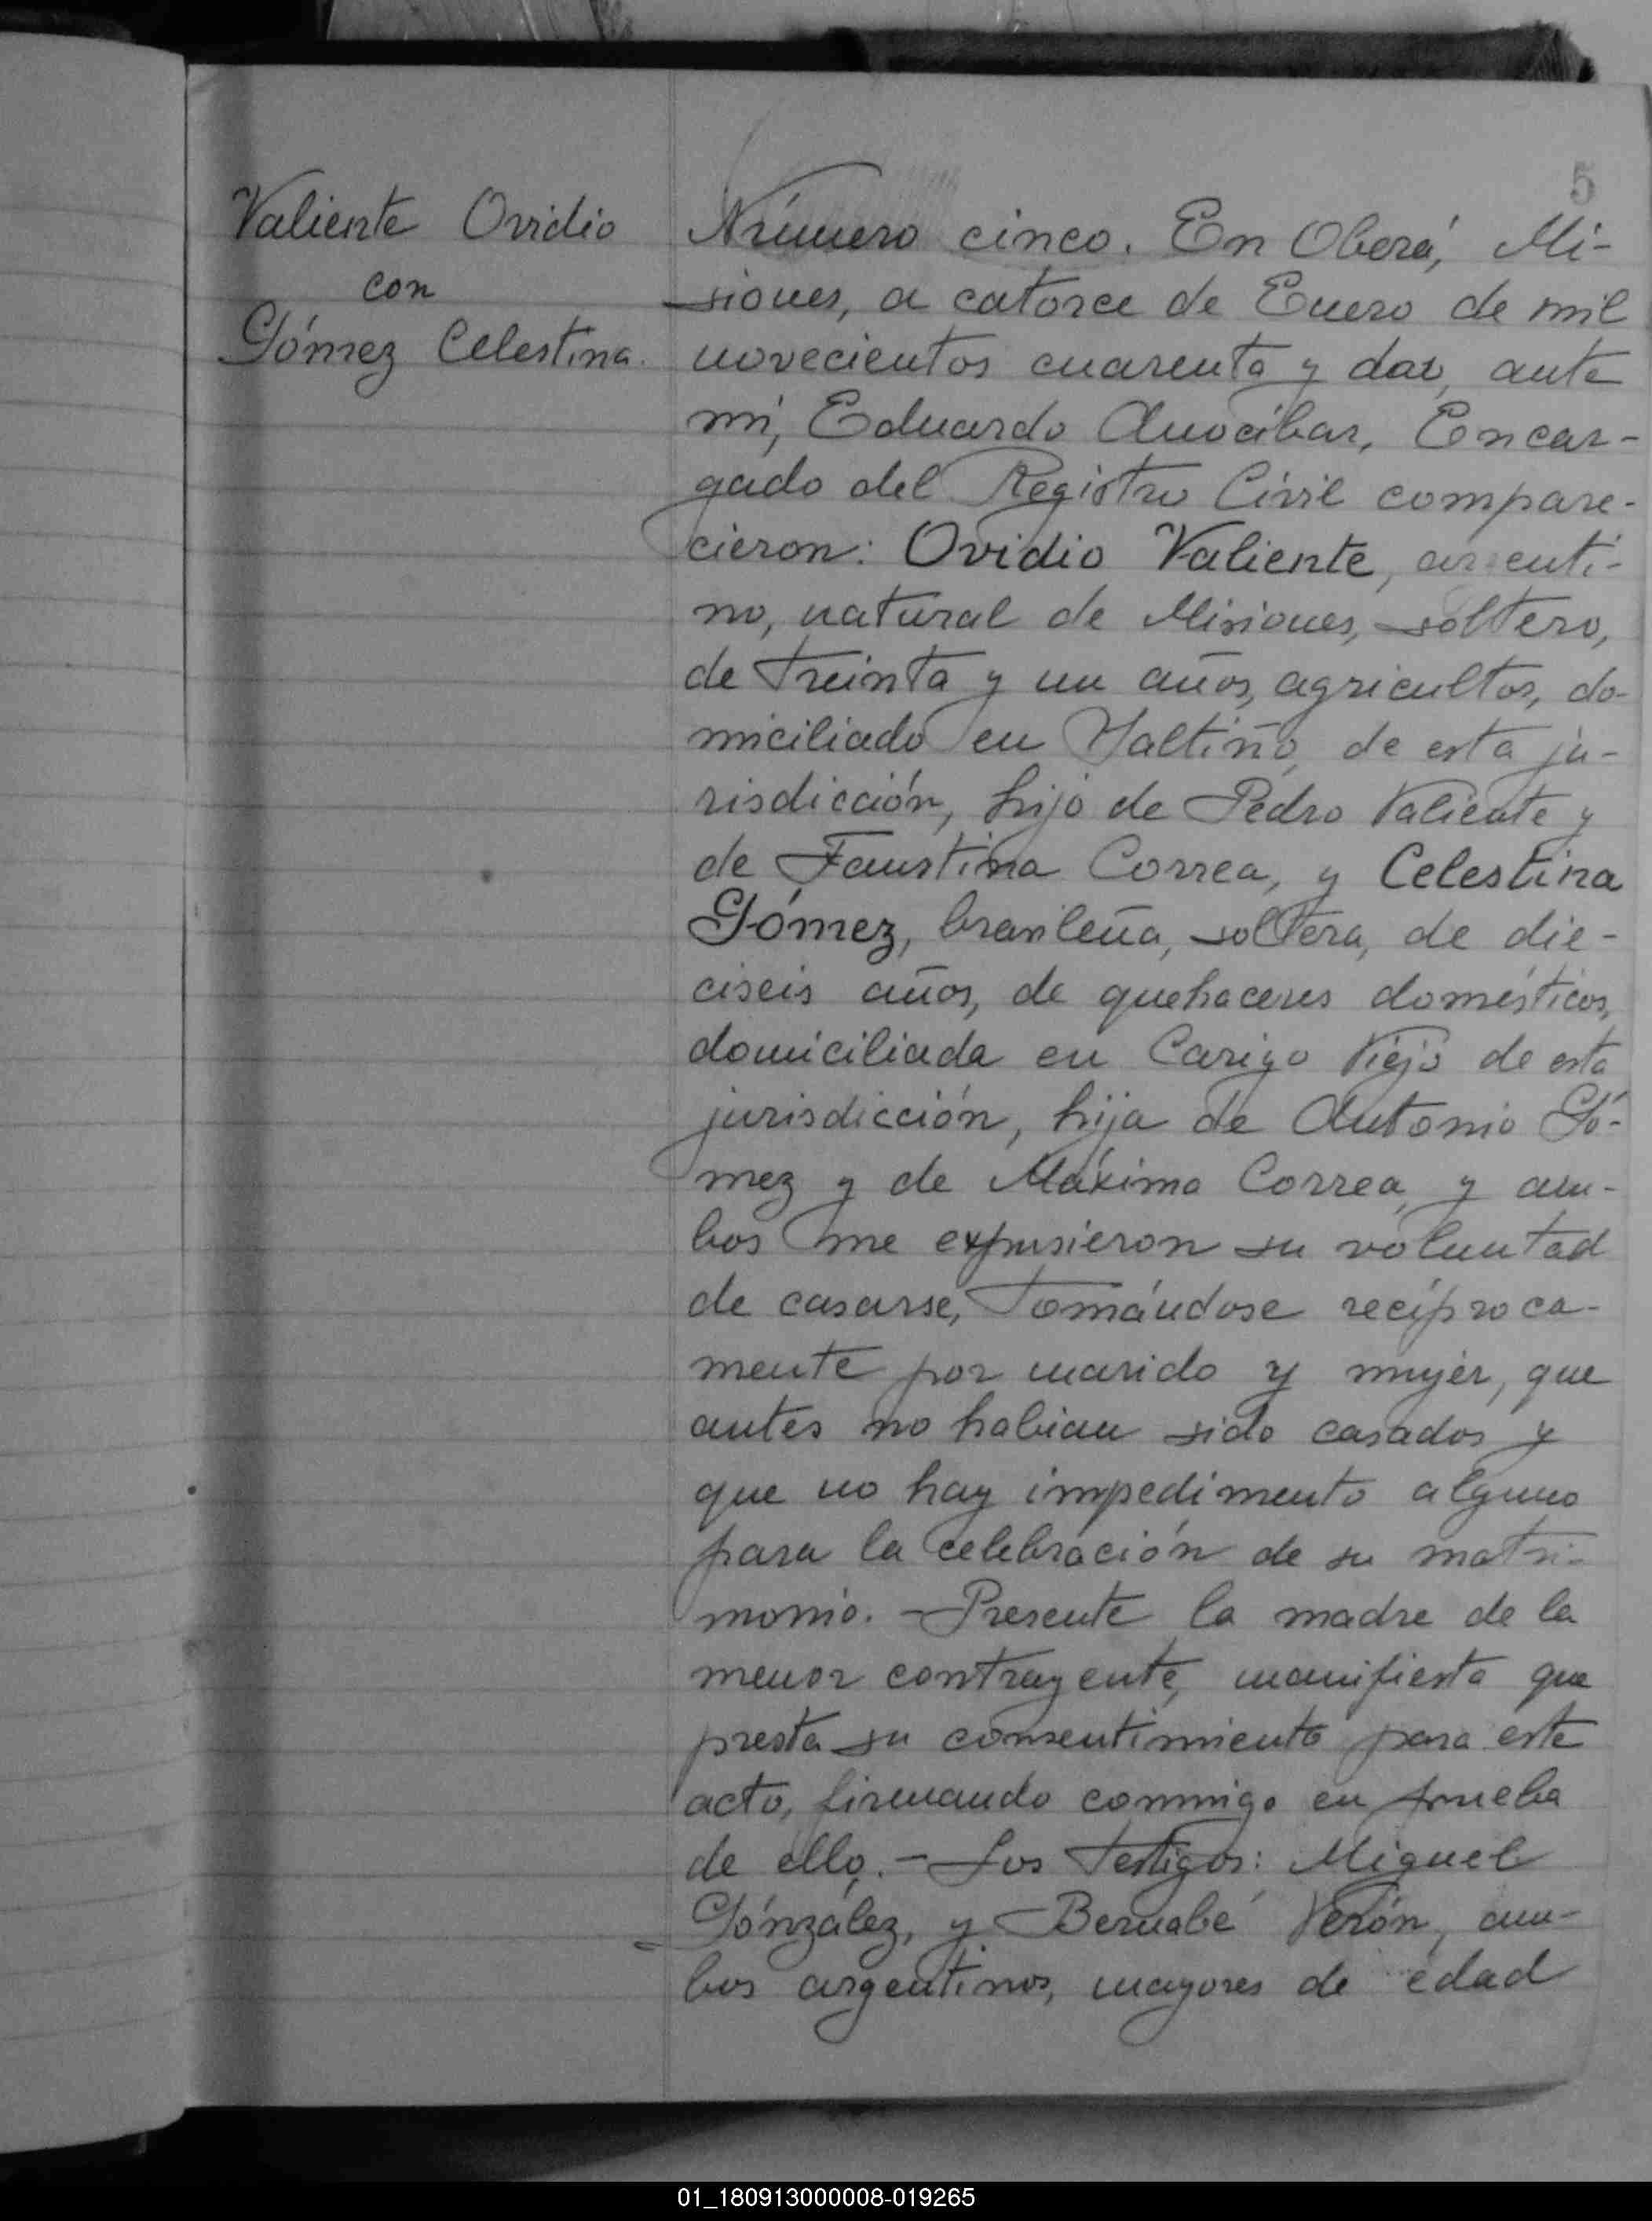 5
Valiente Ovidio
con
Gómez Celestina.
Número cinco. En Oberá, Mi-
siones, a catorce de Enero de mil
novecientos cuarenta y dos, ante
mí, Eduardo Anocíbar, Encar-
gado del Registro Civil compare-
cieron: Ovidio Valiente, argenti-
no, natural de Misiones, soltero,
de treinta y un años, agricultor, do-
miciliado en Saltiño, de esta ju-
risdicción, hijo de Pedro Valiente y
de Faustina Correa, y Celestina
Gómez, brasileña, soltera, de die-
ciseis años, de quehaceres domésticos,
domiciliada en Viejo de esta
jurisdicción, hija de Antonio Gó-
mez y de Máxima Correa, y am-
bos me expusieron su voluntad
de casarse, tomándose recíproca-
mente por marido y mujer, que
antes no habian sido casados y
que no hay impedimento alguno
para la celebración de su matri-
monio. - Presente la madre de la
menor contrayente, manifiesta que
presta su consentimiento para este
acto, firmando conmigo en prueba
de ello. - Los testigos: Miguel
Gónzález, y Bernabé Verón, am-
bos argentinos, mayores de edad
01_180913000008-019265